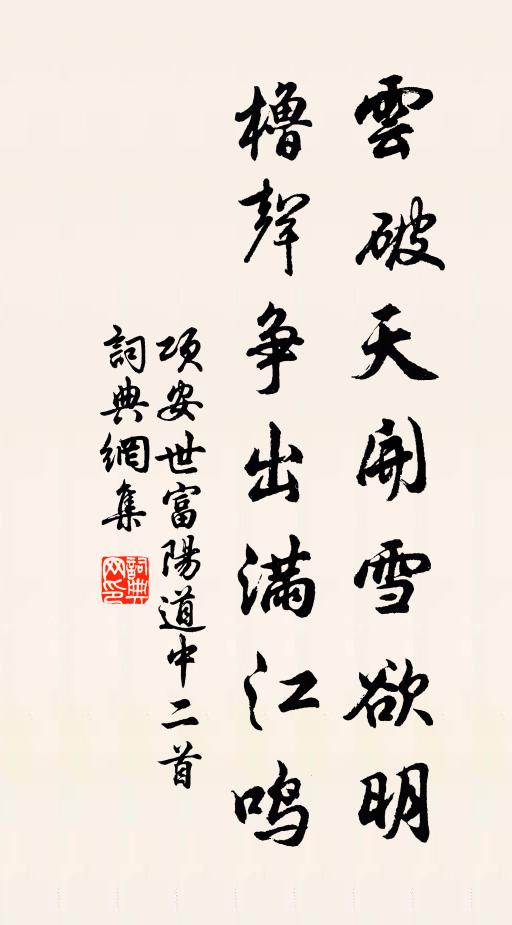 雲破天開雪欲明
櫓聲爭出滿江鳴
項安世富陽道中二首
詞典網集
詞典网印